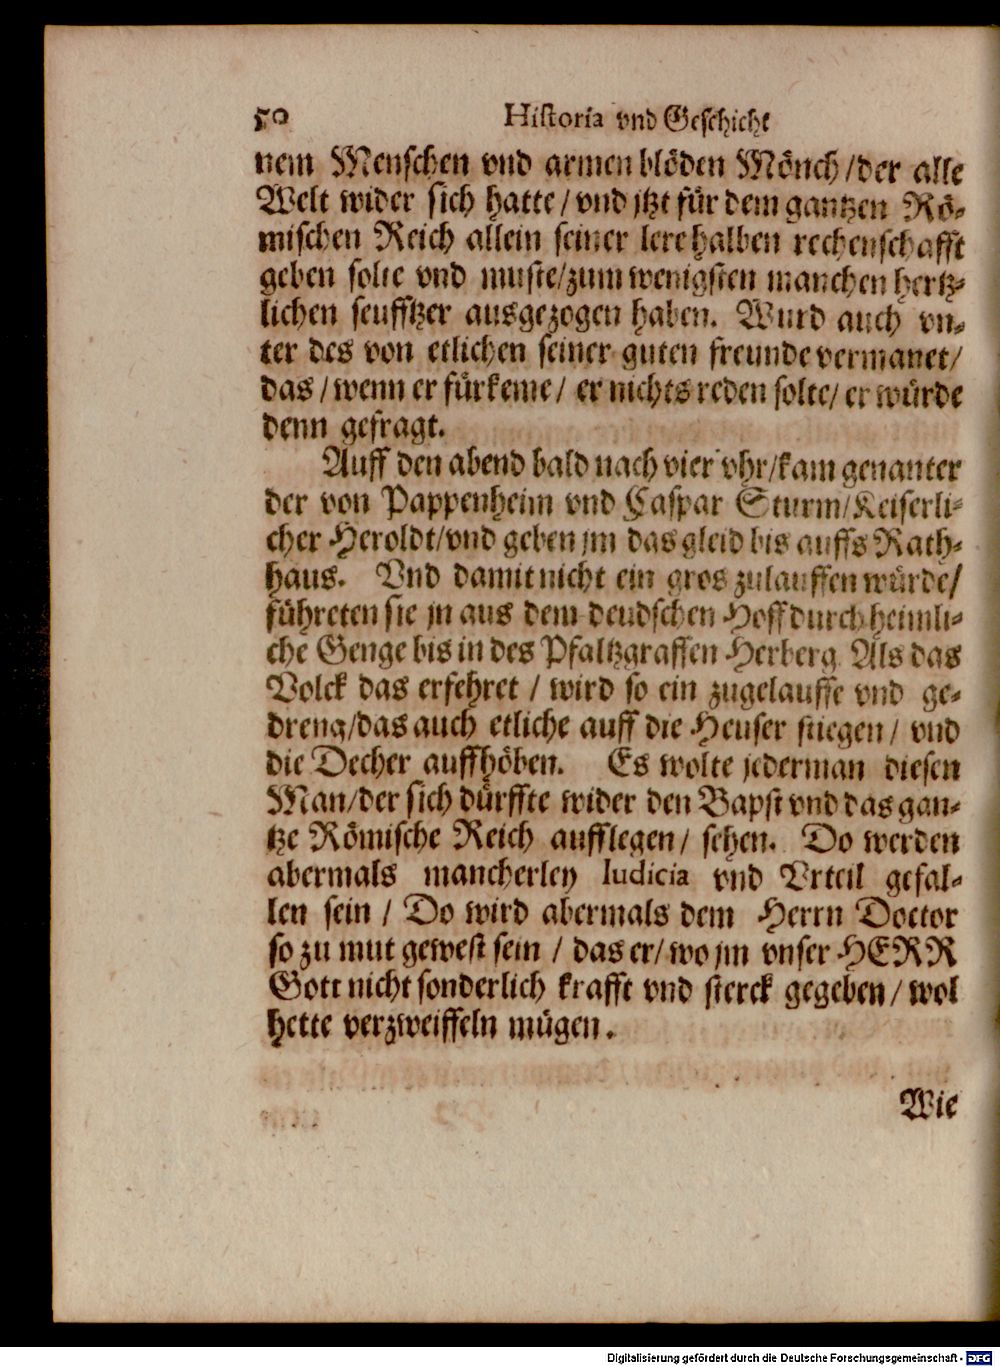 50 Historia vnd Geschicht
nem Menschen vnd armen blöden Mönch/der alle
Welt wider sich hatte/vnd jtzt für dem gantzen Rö-
mischen Reich allein seiner lere halben rechenschafft
geben solte vnd muste/zum wenigsten manchen hertz-
lichen seufftzer ausgezogen haben. Wurd auch vn-
ter des von etlichen seiner guten freunde vermanet/
das/wenn er fürkeme/ er nichts reden solte/ er würde
denn gefragt.
Auff den abend bald nach vier vhr/kam genanter
der von Pappenheim vnd Caspar Sturm/Keiserli-
cher Heroldt/vnd geben jm das gleid bis auffs Rath-
haus. Vnd damit nicht ein gros zulauffen würde/
führeten sie jn aus dem deudschen Hoff durch heimli-
che Genge bis in des Pfaltzgraffen Herberg. Als das
Volck das erfehret / wird so ein zugelauffe vnd ge-
dreng/das auch etliche auff die Heuser stiegen/ vnd
die Decher auffhöben. Es wolte jederman diesen
Man/der sich dürffte wider den Bapst vnd das gan-
tze Römische Reich aufflegen/ sehen. Do werden
abermals mancherley Iudicia vnd Vrteil gefal-
len sein / Do wird abermals dem Herrn Doctor
so zu mut gewest sein / das er/ wo jm vnser HERR
Gott nicht sonderlich krafft vnd sterck gegeben/ wol
hette verzweiffeln mügen.
Wie
Digitalisierung gefördert durch die Deutsche Forschungsgemeinschaft - DFG